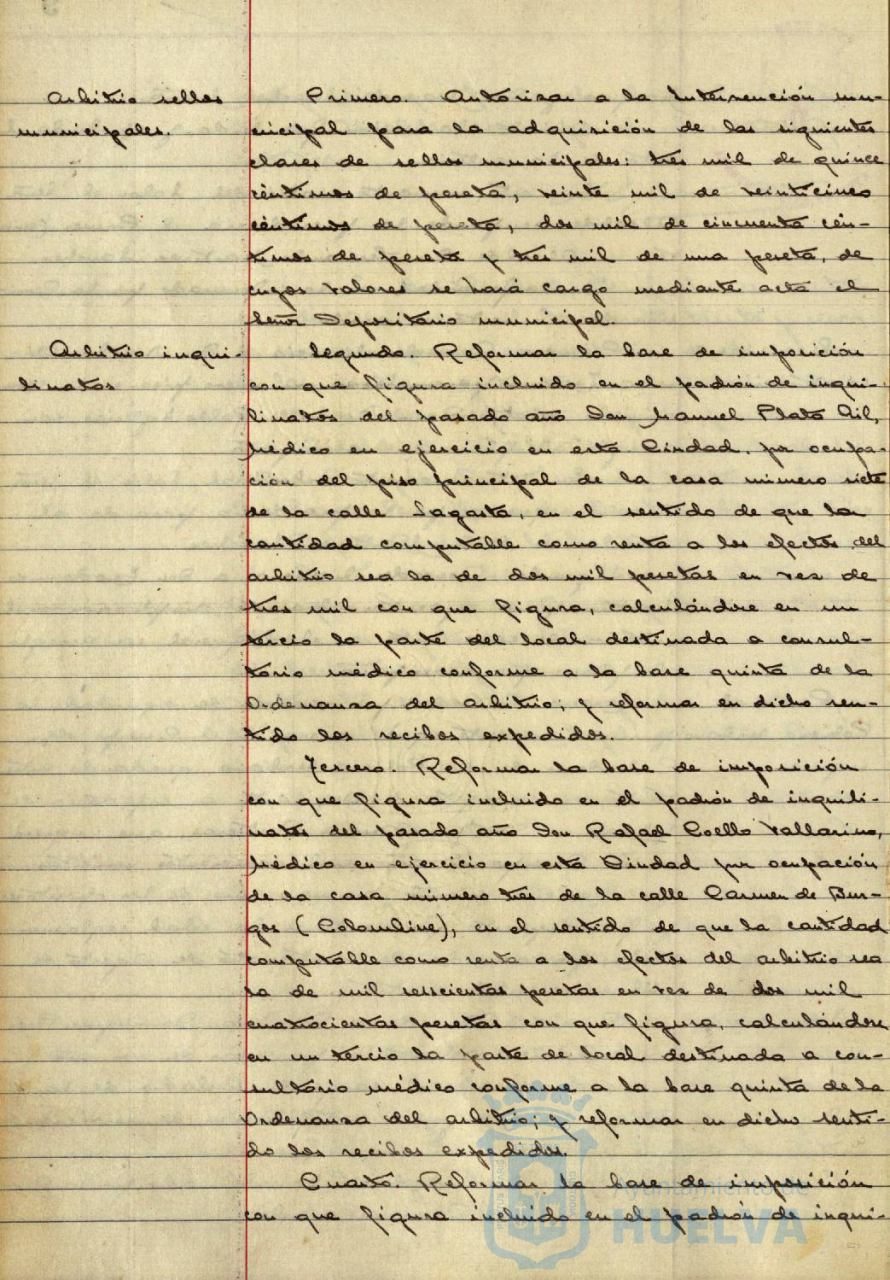 Arbitrio sellos
municipales.
Primero. Autorizar a la Intervención mu-
nicipal para la adquisición de las siguientes
clases de sellos municipales: tres mil de quince
céntimos de peseta, veinte mil de veinticinco
céntimos de peseta, dos mil de cincuenta cén-
timos de peseta y tres mil de una peseta, de
cuyos valores se hará cargo mediante acta el
Señor Depositario municipal.
Arbitrio inqui-
linatos
Segundo. Reformar la base de imposición
con que figura incluido en el padrón de inqui-
linatos del pasado año Don Manuel Plata Gil,
Médico en ejercicio en esta Ciudad, por ocupa-
ción del piso principal de la casa número siete
de la calle Sagasta, en el sentido de que la
cantidad computable como renta a los efectos del
arbitrio sea la de dos mil pesetas en vez de
tres mil con que figura, calculándose en un
tercio la parte del local destinada a consul-
torio médico conforme a la base quinta de la
Ordenanza del arbitrio; y reformar en dicho sen-
tido los recibos expedidos.
Tercero. Reformar la base de imposición
con que figura incluido en el padrón de inquili-
natos del pasado año Don Rafael Coello Vallarino,
Médico en ejercicio en esta Ciudad por ocupación
de la casa número tres de la calle Carmen de Bur-
gos (Colombine), en el sentido de que la cantidad
computable como renta a los efectos del arbitrio sea
la de mil seiscientas pesetas en vez de dos mil
cuatrocientas pesetas con que figura, calculándose
en un tercio la parte de local destinada a con-
sultorio médico conforme a la base quinta de la
Ordenanza del arbitrio; y reformar en dicho senti-
do los recibos expedidos.
Cuarto. Reformar la base de imposición
con que figura incluido en el padrón de inqui-
Ayuntamiento de
HUELVA